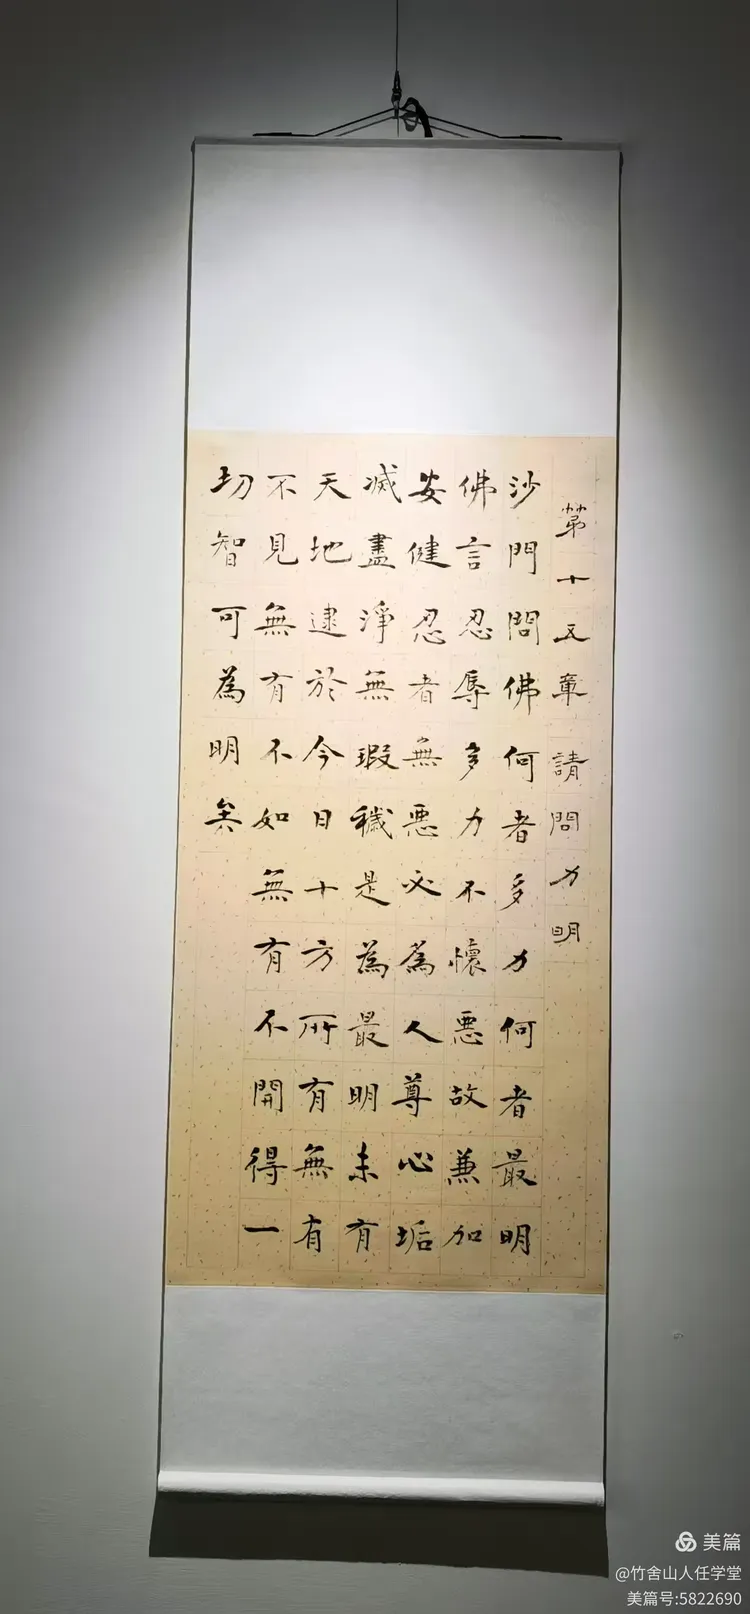 第十五章請問力明
沙門問佛何者多力何者最明
佛言忍辱多力不懷惡故兼加
安健忍者無惡必為人尊心垢
滅盡淨無瑕穢是為最明未有
天地逮於今日十方所有無有
不見無有不如無有不開得一
切智可為明矣
美篇
@竹舍山人任学堂
美篇号:5822690